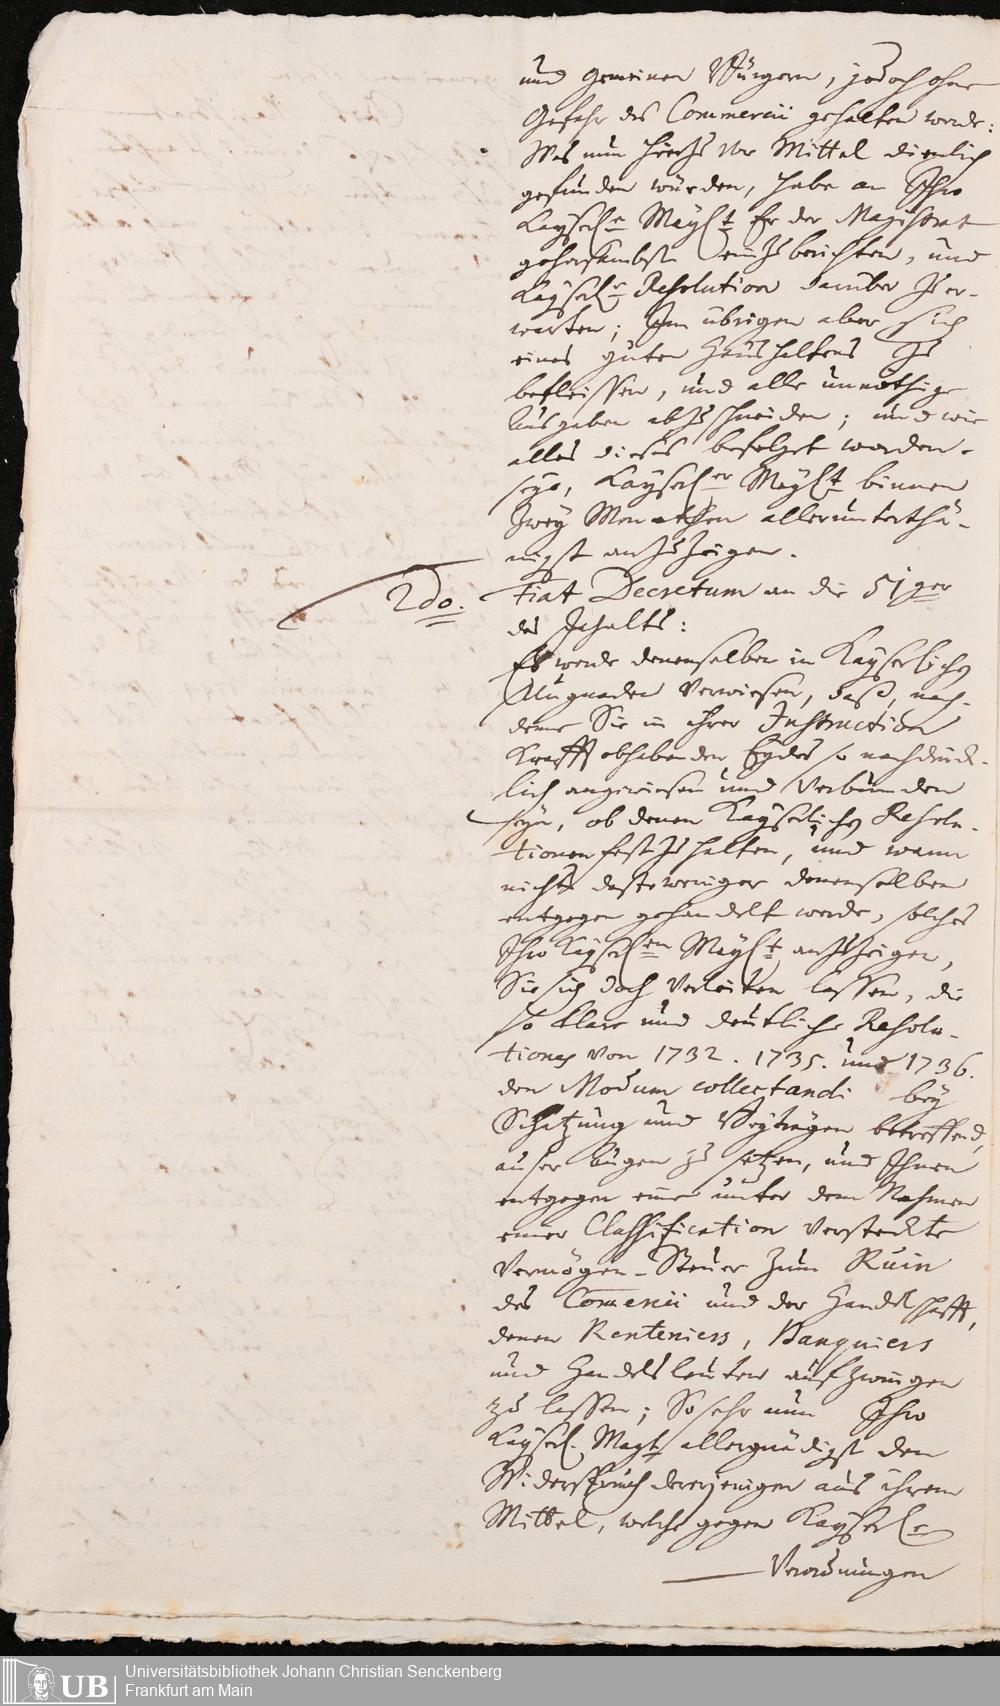 und gemeinen Bürgern, jedoch ohne
Gefahr des Commercii gehalten werde:
Was nun hierzu vor Mittel dienlich
gefunden würden, habe an Ihro
Kayserl.e May.t Er der Magistrat
gehorsambst einzuberichten, und
Kayserl.e Resolution darüber zu er-
warten; Im übrigen aber sich
eines guten Haushaltens zu
befleissen, und alle unnöthige
Ausgaben abzuschneiden; und wie
alles dieses befolget worden
seye, Kayserl.er May.t binnen
Zwey Monathen allerunterthä-
nigst anzuzeigen.
2do. Fiat Decretum an die 51ger
des Inhalts:
Es werde denenselben in Kayserlichen
Ungnaden verwiesen, daß, nach-
deme Sie in ihrer Instruction
Krafft obhabenden Eydes so nachdrück-
lich angewiesen und verbunden
seyn, ob denen Kayserlichen Resolu-
tionen fest zu halten, und wann
nichts destoweniger denenselben
entgegen gehandelt werde, solches
Ihro Kayserl.en May.t anzuzeigen,
Sie sich doch verleiten lassen, die
so klare und deutliche Resolu-
tiones von 1732. 1735. und 1736.
den Modum collectandi bey
Schatzung und Beyträgen betreffend,
auser Augen zu setzen, und Ihnen
entgegen eine unter dem Nahmen
einer Classification versteckte
Vermögen-Steuer zum Ruin
des Comercii und der Handelschafft,
denen Renteniers, Banquiers
und Handelsleuten aufzwingen
zu lassen; So sehr nun Ihro
Kayserl. Mayt. allergnädigst den
Widerspruch derjenigen aus ihrem
Mittel, welche gegen Kayserl.e
Verordnungen
UB
Universitätsbibliothek Johann Christian Senckenberg
Frankfurt am Main